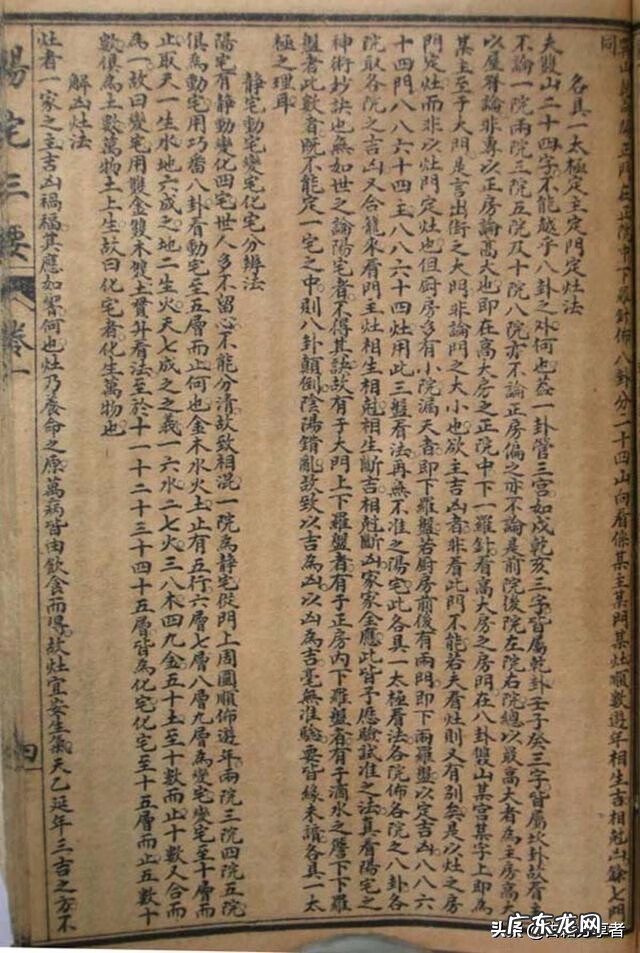 山向正門在正院中下羅針佈八卦分二十四山向看係某主某門某灶順數遊年相生吉相尅凶餘七門
同
各具一太極定主定門定灶法
夫雙山二十四字不能越乎八卦之外何也蓋一卦管三宮如戌乾亥三字皆屬乾卦壬子癸三字皆屬坎卦故看主
不論一院兩院三院五院及十院八院亦不論正房偏之亦不論是前院後院左院右院總以最高大者為主房高大
以屋脊論非專以正房論高大也即在高大房之正院中下一羅針看高大房之房門在八卦雙山某宮某字上即為
某主至于大門是言出街之大門非論門之大小也欲主吉凶者非看此門不能若夫看灶則又有別矣是以灶之房
門定灶而非以灶門定灶也但厨房多有小院漏天者即下羅盤若厨房前後有兩門即下兩羅盤以定吉凶八八六
十四門八八六十四主八八六十四灶用此三盤看法再無不准之陽宅此各具一太極看法各院佈各院之八卦各
院取各院之吉凶又合籠來看門主灶相生相尅相生斷吉相尅斷凶家家全應此皆予應驗試准之法真看陽宅之
神術抄訣也無如世之論陽宅者不得其訣故有于大門上下羅盤者有于正房內下羅盤者有于滴水之簷下下羅
盤者此數者既不能定一宅之中則八卦顛倒陰陽錯亂故致以吉為凶以凶為吉毫無准驗要皆緣未讀各具一太
極之理耳
靜宅動宅變宅化宅分辨法
陽宅有静動變化四宅世人多不留心不能分清故致相混一院為静宅從門上周圍順佈遊年兩院三院四院五院
俱為動宅用巧番八卦看動宅至五層而止何也金木水火土止有五行六層七層八層九層為變宅變宅至十層而
止取天一生水地六成之地二生火天七成之之義一六水二七火三八木四九金五十土至十數而止十數又合而
為一故曰變宅用雙金雙木雙土貫井看法至於十一十二十三十四十五層皆為化宅化宅至十五層而止五數十
數俱為土數萬物土上生故曰化宅者化生萬物也
解凶灶法
灶者一家之主吉凶禍福其應如響何也灶乃養命之原萬病皆由飲食而得故灶宜安生氣天乙延年三吉之方不
陽宅三要 卷一
四
头条@古籍分享者
广东龙网